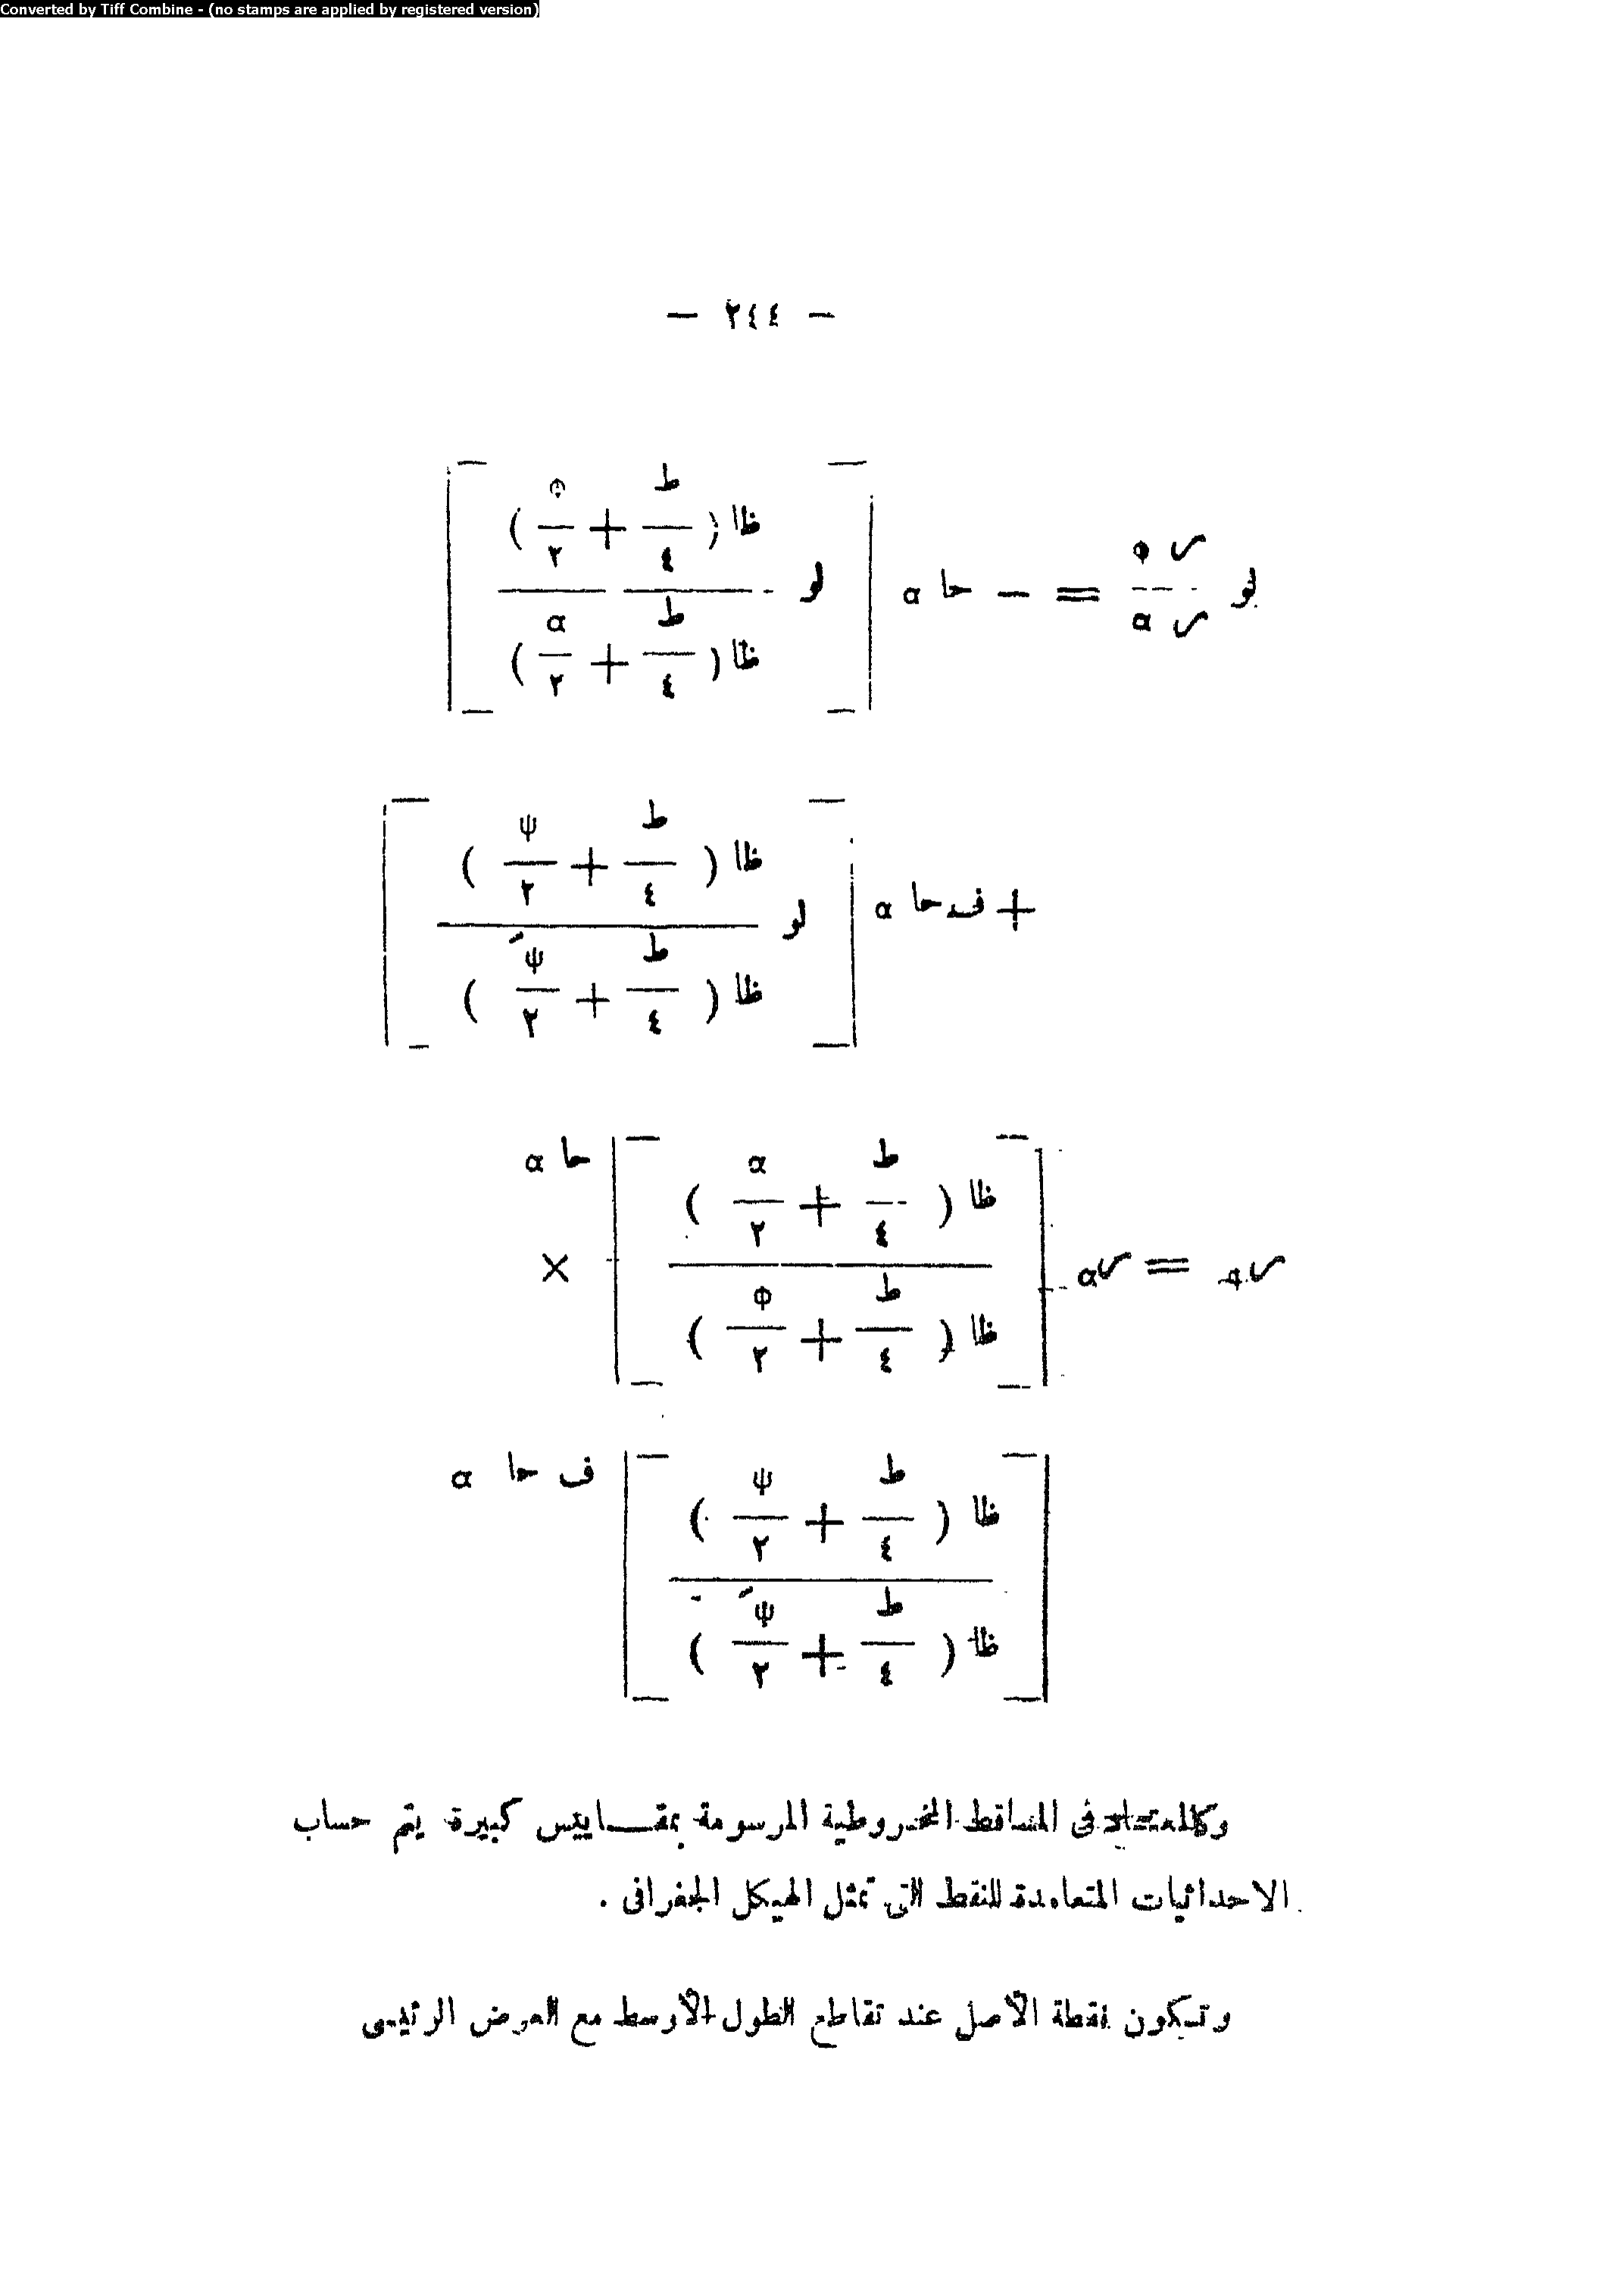 Converted by Tiff Combine - (no stamps are applied by registered version)
— ٢٤٤ —
لو (س φ / س α) = — حا α [ لو ( ظا ( ط/٤ + φ/٢ ) / ظا ( ط/٤ + α/٢ ) ) ]
+ ف حا α [ لو ( ظا ( ط/٤ + ψ/٢ ) / ظا ( ط/٤ + ψ́/٢ ) ) ]
س φ = س α [ ظا ( ط/٤ + α/٢ ) / ظا ( ط/٤ + φ/٢ ) ] حا α ×
[ ظا ( ط/٤ + ψ/٢ ) / ظا ( ط/٤ + ψ́/٢ ) ] ف حا α
وكالمعتاد فى المساقط المخروطية المرسومة بمقـــاييس كبيرة يتم حساب
الاحداثيات المتعامدة للنقط التى تمثل الهيكل الجغرافى .
وتـكون نقطة الأصل عند تقاطع الطول الأوسط مع العرض الرئيسى